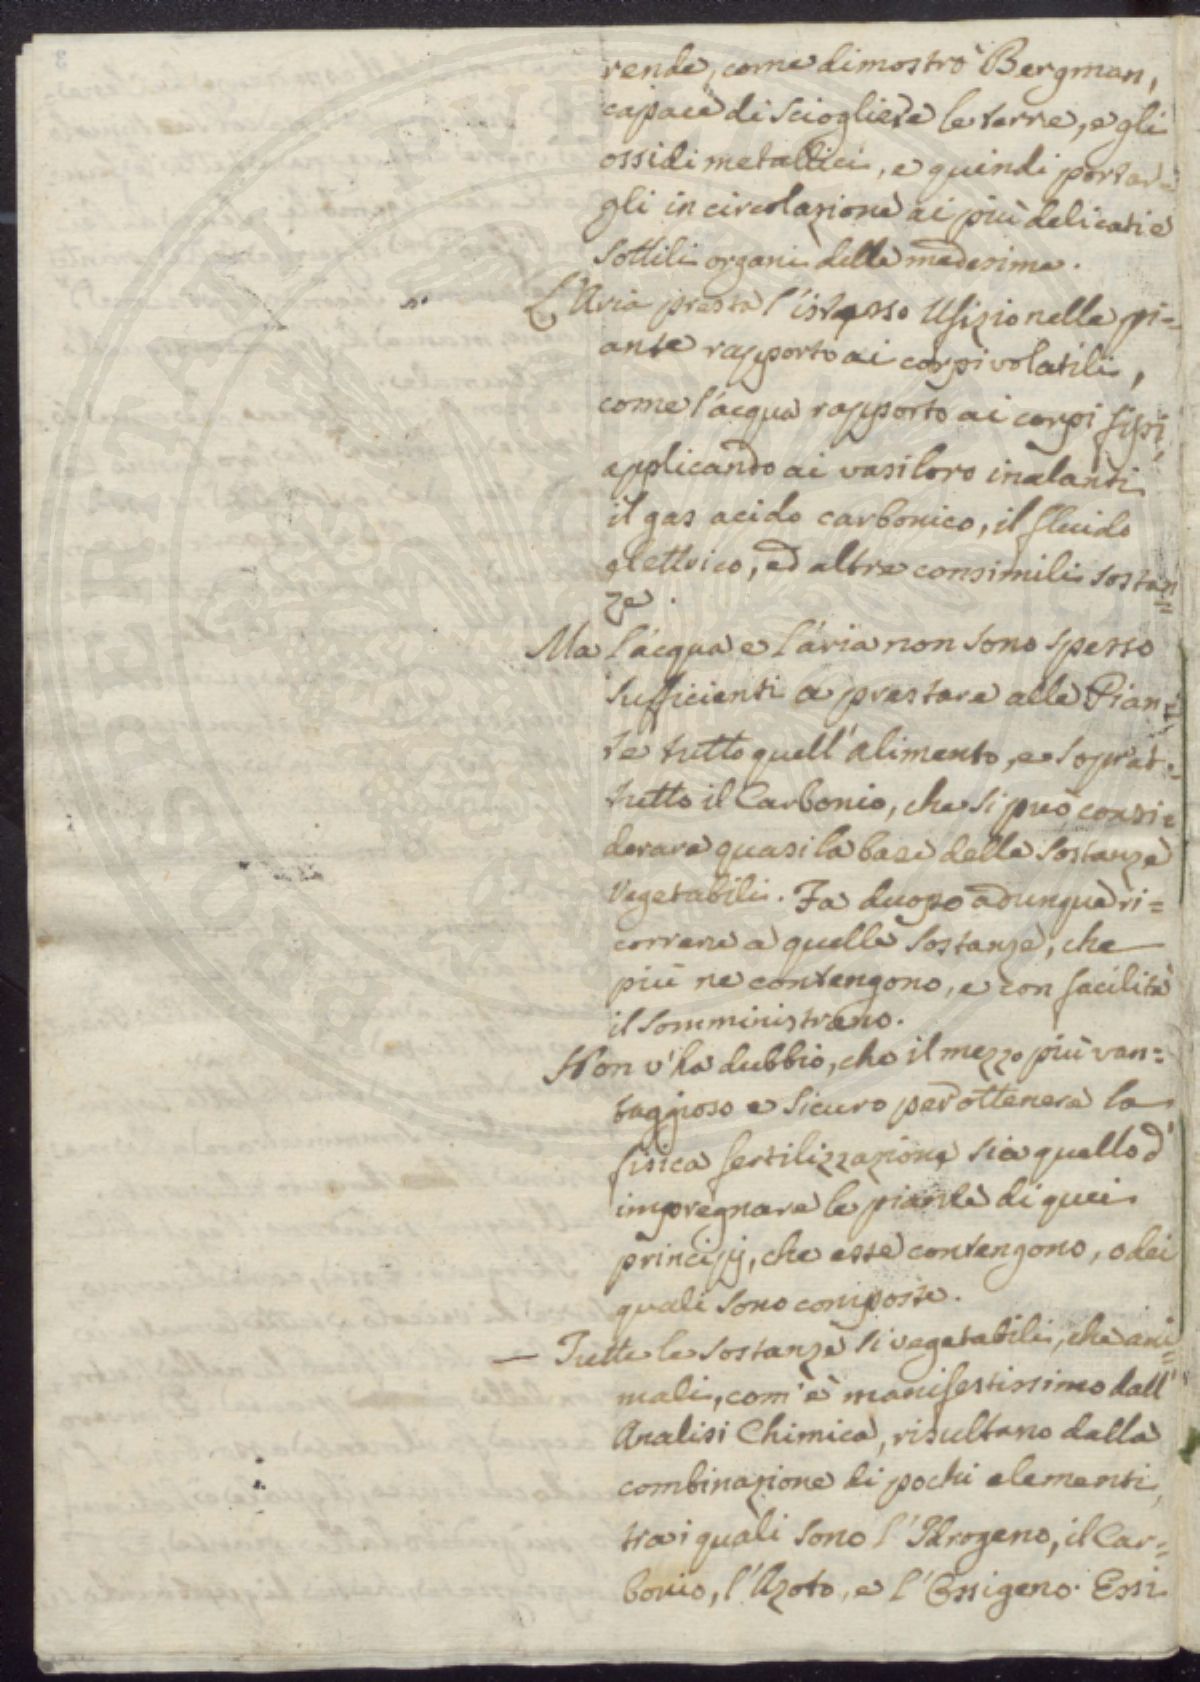 rende, come dimostrò Bergman,
capace di sciogliere le terre, e gli
ossidi metallici, e quindi portar=
gli in circolazione ai più delicati e
sottili organi delle medesime.
L'Aria presta l'istesso Ufizio nelle pi=
ante rapporto ai corpi volatili,
come l'acqua rapporto ai corpi fissi,
applicando ai vasi loro inalanti
il gas acido carbonico, il fluido
elettrico, ed altre consimili sostan=
ze.
Ma l'acqua e l'aria non sono spesso
sufficienti a prestare alle Pian=
te tutto quell'alimento, e soprat=
tutto il Carbonio, che si può consi=
derare quasi la base delle sostanze
Vegetabili. Fa duopo adunque ri=
correre a quelle sostanze, che
più ne contengono, e con facilità
il somministrano.
Non v'ha dubbio, che il mezzo più van=
taggioso e sicuro per ottenere la
fisica fertilizzazione sia quello d'
impregnare le piante di quei
principj, che esse contengono, o dei
quali sono composte.
— Tutte le sostanze sì vegetabili, che ani=
mali, com'è manifestissimo dall'
Analisi Chimica, risultano dalla
combinazione di pochi elementi,
tra i quali sono l'Idrogeno, il Car=
bonio, l'Azoto, e l'Ossigeno. Essi